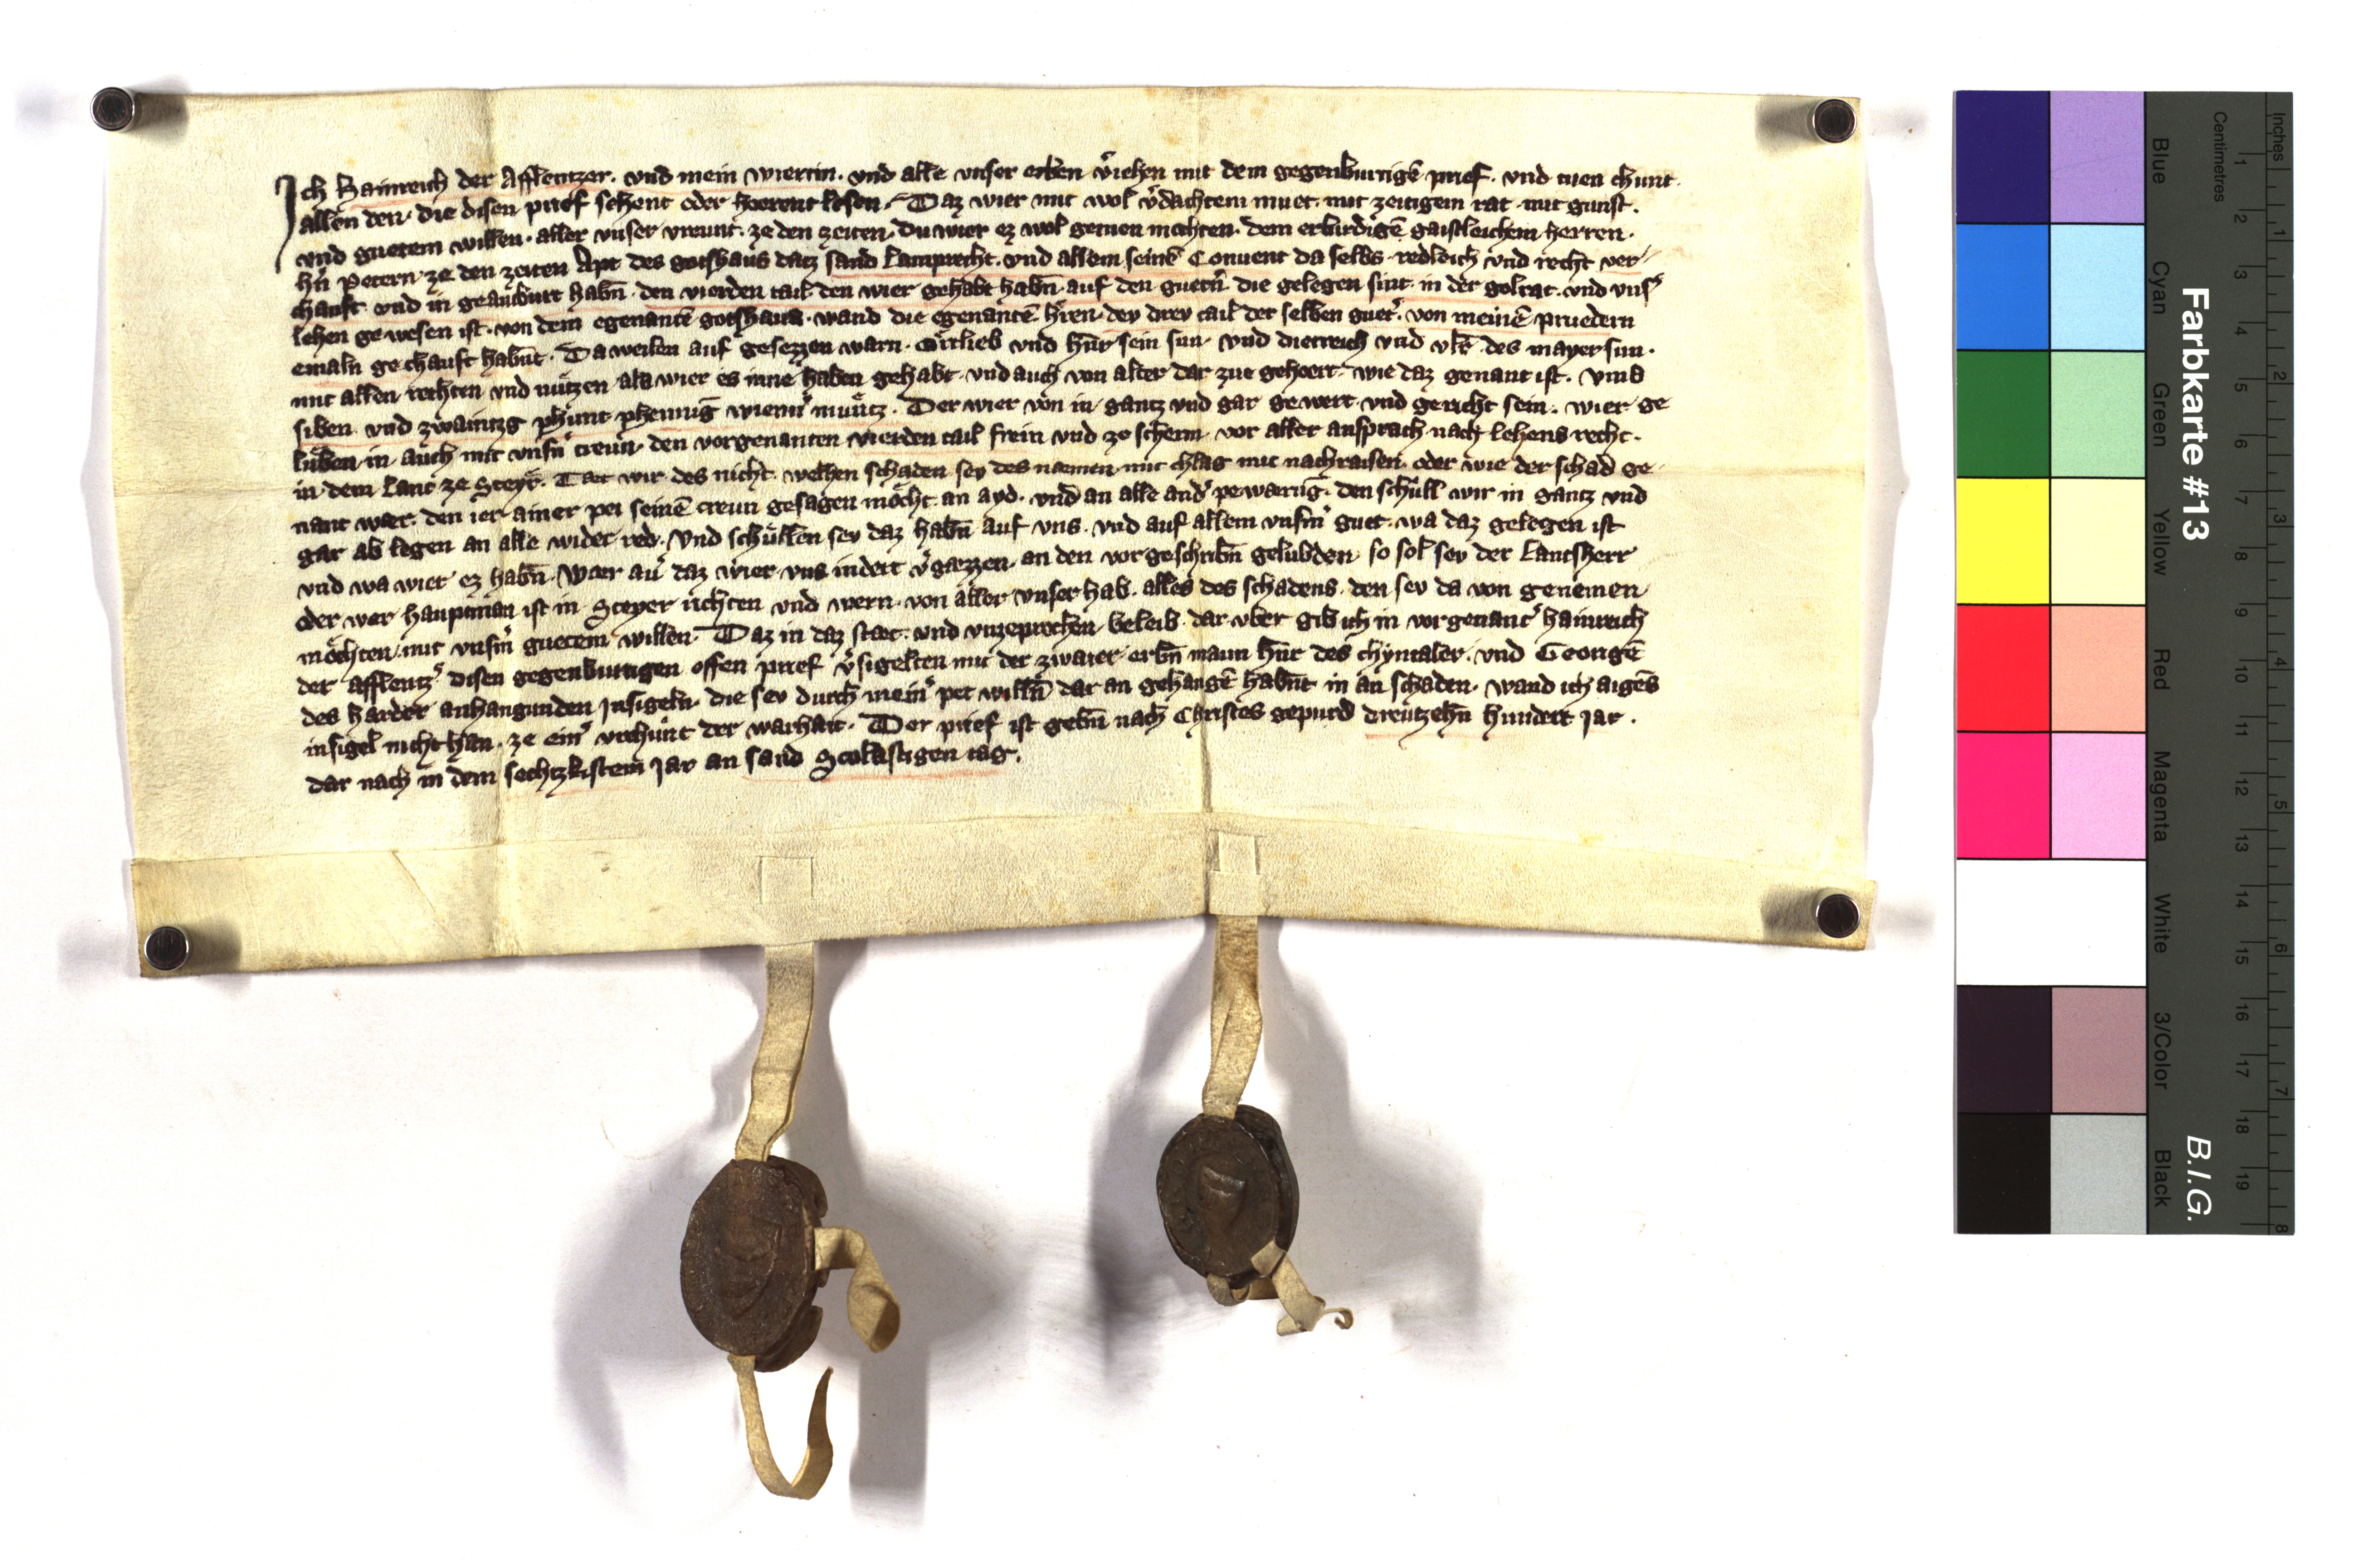 Ich Hainreich der Afflentzer. vnd mein wiertin. vnd alle vnser erben v̾iehen mit dem gegenburtigē prief. vnd tuen chunt.
allen den. die disen prief sehent oder hoerent lesen. Daz wier mit wol v̾dachtem muet. mit zeitigem rat. mit gunst.
vnd guetem willen. aller vnser vreunt. ze den zeiten. Du wier ez wol getuen mochten. dem erbirdigē gaistleichem herren.
h̄n Petern ze den zeiten Apt des gotshaus datz sand Lamprecht. vnd allem seinē Conuent da selbs. redleich vnd recht ver
chauft. vnd in geantburt habn̄. den vierden tail. den wier gehabt habn̄. auf den guetn̄. die gelegen sint. in der goltrat. vnd vns̾
lehen gewesen ist. von dem egenantē gotshaus. wand die egenantē h̄ren. dey drey tail der selben guet̾. von meinē pruedern
emaln gechauft habn̄t. Da weilen auf gesezzen warn. Ortlieb vnd Hn̄r sein sun. vnd dietreich vnd vlr̄ des mayer sun.
mit allen rechten vnd nützen als wier es inne haben gehabt. vnd auch von alter dar zue gehoert. wie daz genant ist. vmb
siben vnd zwaintzg phunt phenniḡ wienn̾ munz̈. Der wier von in gantz vnd gar gewert. vnd gericht sein. wier ge
luben in auch mit vnsn̄ treun. den vorgenanten vierden tail frein vnd ze scherm vor aller ansprach. nach lehens recht.
in dem Lant ze Steyr. Taet wir des nicht. welhen schaden sey des naemen mit chlag mit nachraisen. oder wie der schad ge
nant waer. den ier ainer pei seinē treun gesagen mocht. an ayd. vnd an alle and̾ pewarūg. den schull wir in gantz vnd
gar ab legen an alle wider red. Vnd schullen sey daz habn̄ auf vns. vnd auf allem vnsm̄ guet. wa daz gelegen ist
vnd wa wier ez habn̄. Waer au̾ daz wier vns indert v̾gaezzen. an den vorgeschribn̄ gelubden. so sol sey der Lantsherr
oder wer hauptman ist in Steyer richten vnd wern. von aller vnser hab. alles des schadens. den sey da von genemen
mochten. mit vnsm̄ guetem willen. Daz in daz staet. vnd vnzeprochen. beleib. dar vber gib ich in vorgenant̾ hainreich
der afflentz̾ disen gegenburtigen offen prief v̾sigelten mit der zwaier erbn̄ mann Hn̄r des chyntaler. vnd Georigē
des harder anhangunden Insigeln. die sey durch mein̾ pet willn̄ dar an gehangē habn̄t in an schaden. wand ich aigēs
insigel nicht han. ze ein̾ vrchunt der warhait. Der prief ist gebn̄ nach Christes gepurd dreutzehn̄ hundert Jar.
dar nach in dem sechtzkistem Jar an sand Scolastigen tag.
Farbkarte #13
B.I.G.
Blue
Cyan
Green
Yellow
Red
Magenta
White
3/Color
Black
Centimetres
1 2 3 4 5 6 7 8 9 10 11 12 13 14 15 16 17 18 19
Inches
1 2 3 4 5 6 7 8